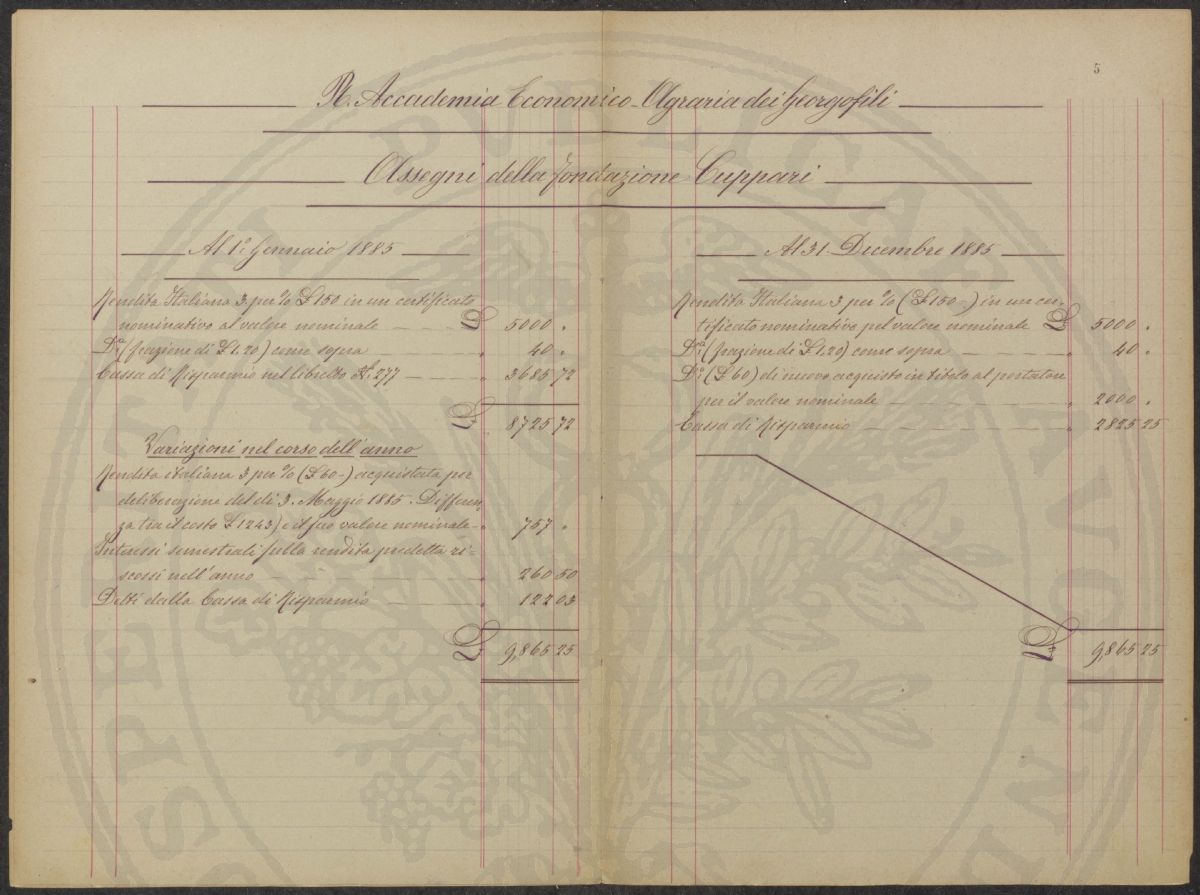 5
R. Accademia Economico-Agraria dei Georgofili
Assegni della Fondazione Cuppari
Al 1º Gennaio 1885
Rendita Italiana 3 per % £ 150 in un certificato
nominativo al valore nominale £ 5000 "
Dª (frazione di £ 1.20) come sopra " 40 "
Cassa di Risparmio nel libretto Nº 277 " 3685 72
£ 8725 72
Variazioni nel corso dell'anno
Rendita italiana 3 per % (£ 60-) acquistata per
deliberazione del dì 3. Maggio 1885. Differen-
za tra il costo £ 1243) e il suo valore nominale- " 757 "
Interessi semestrali sulla rendita predetta ri-
scossi nell'anno " 260 50
Detti dalla Cassa di Risparmio " 122 03
£ 9,865 25
Al 31. Decembre 1885
Rendita Italiana 3 per % (£ 150-) in un cer-
tificato nominativo pel valore nominale £ 5000 "
Dª (frazione di £ 1.20) come sopra " 40 "
Dª (£ 60) di nuovo acquisto in titolo al portatore
per il valore nominale " 2000 "
Cassa di Risparmio " 2825 25
£ 9,865 25